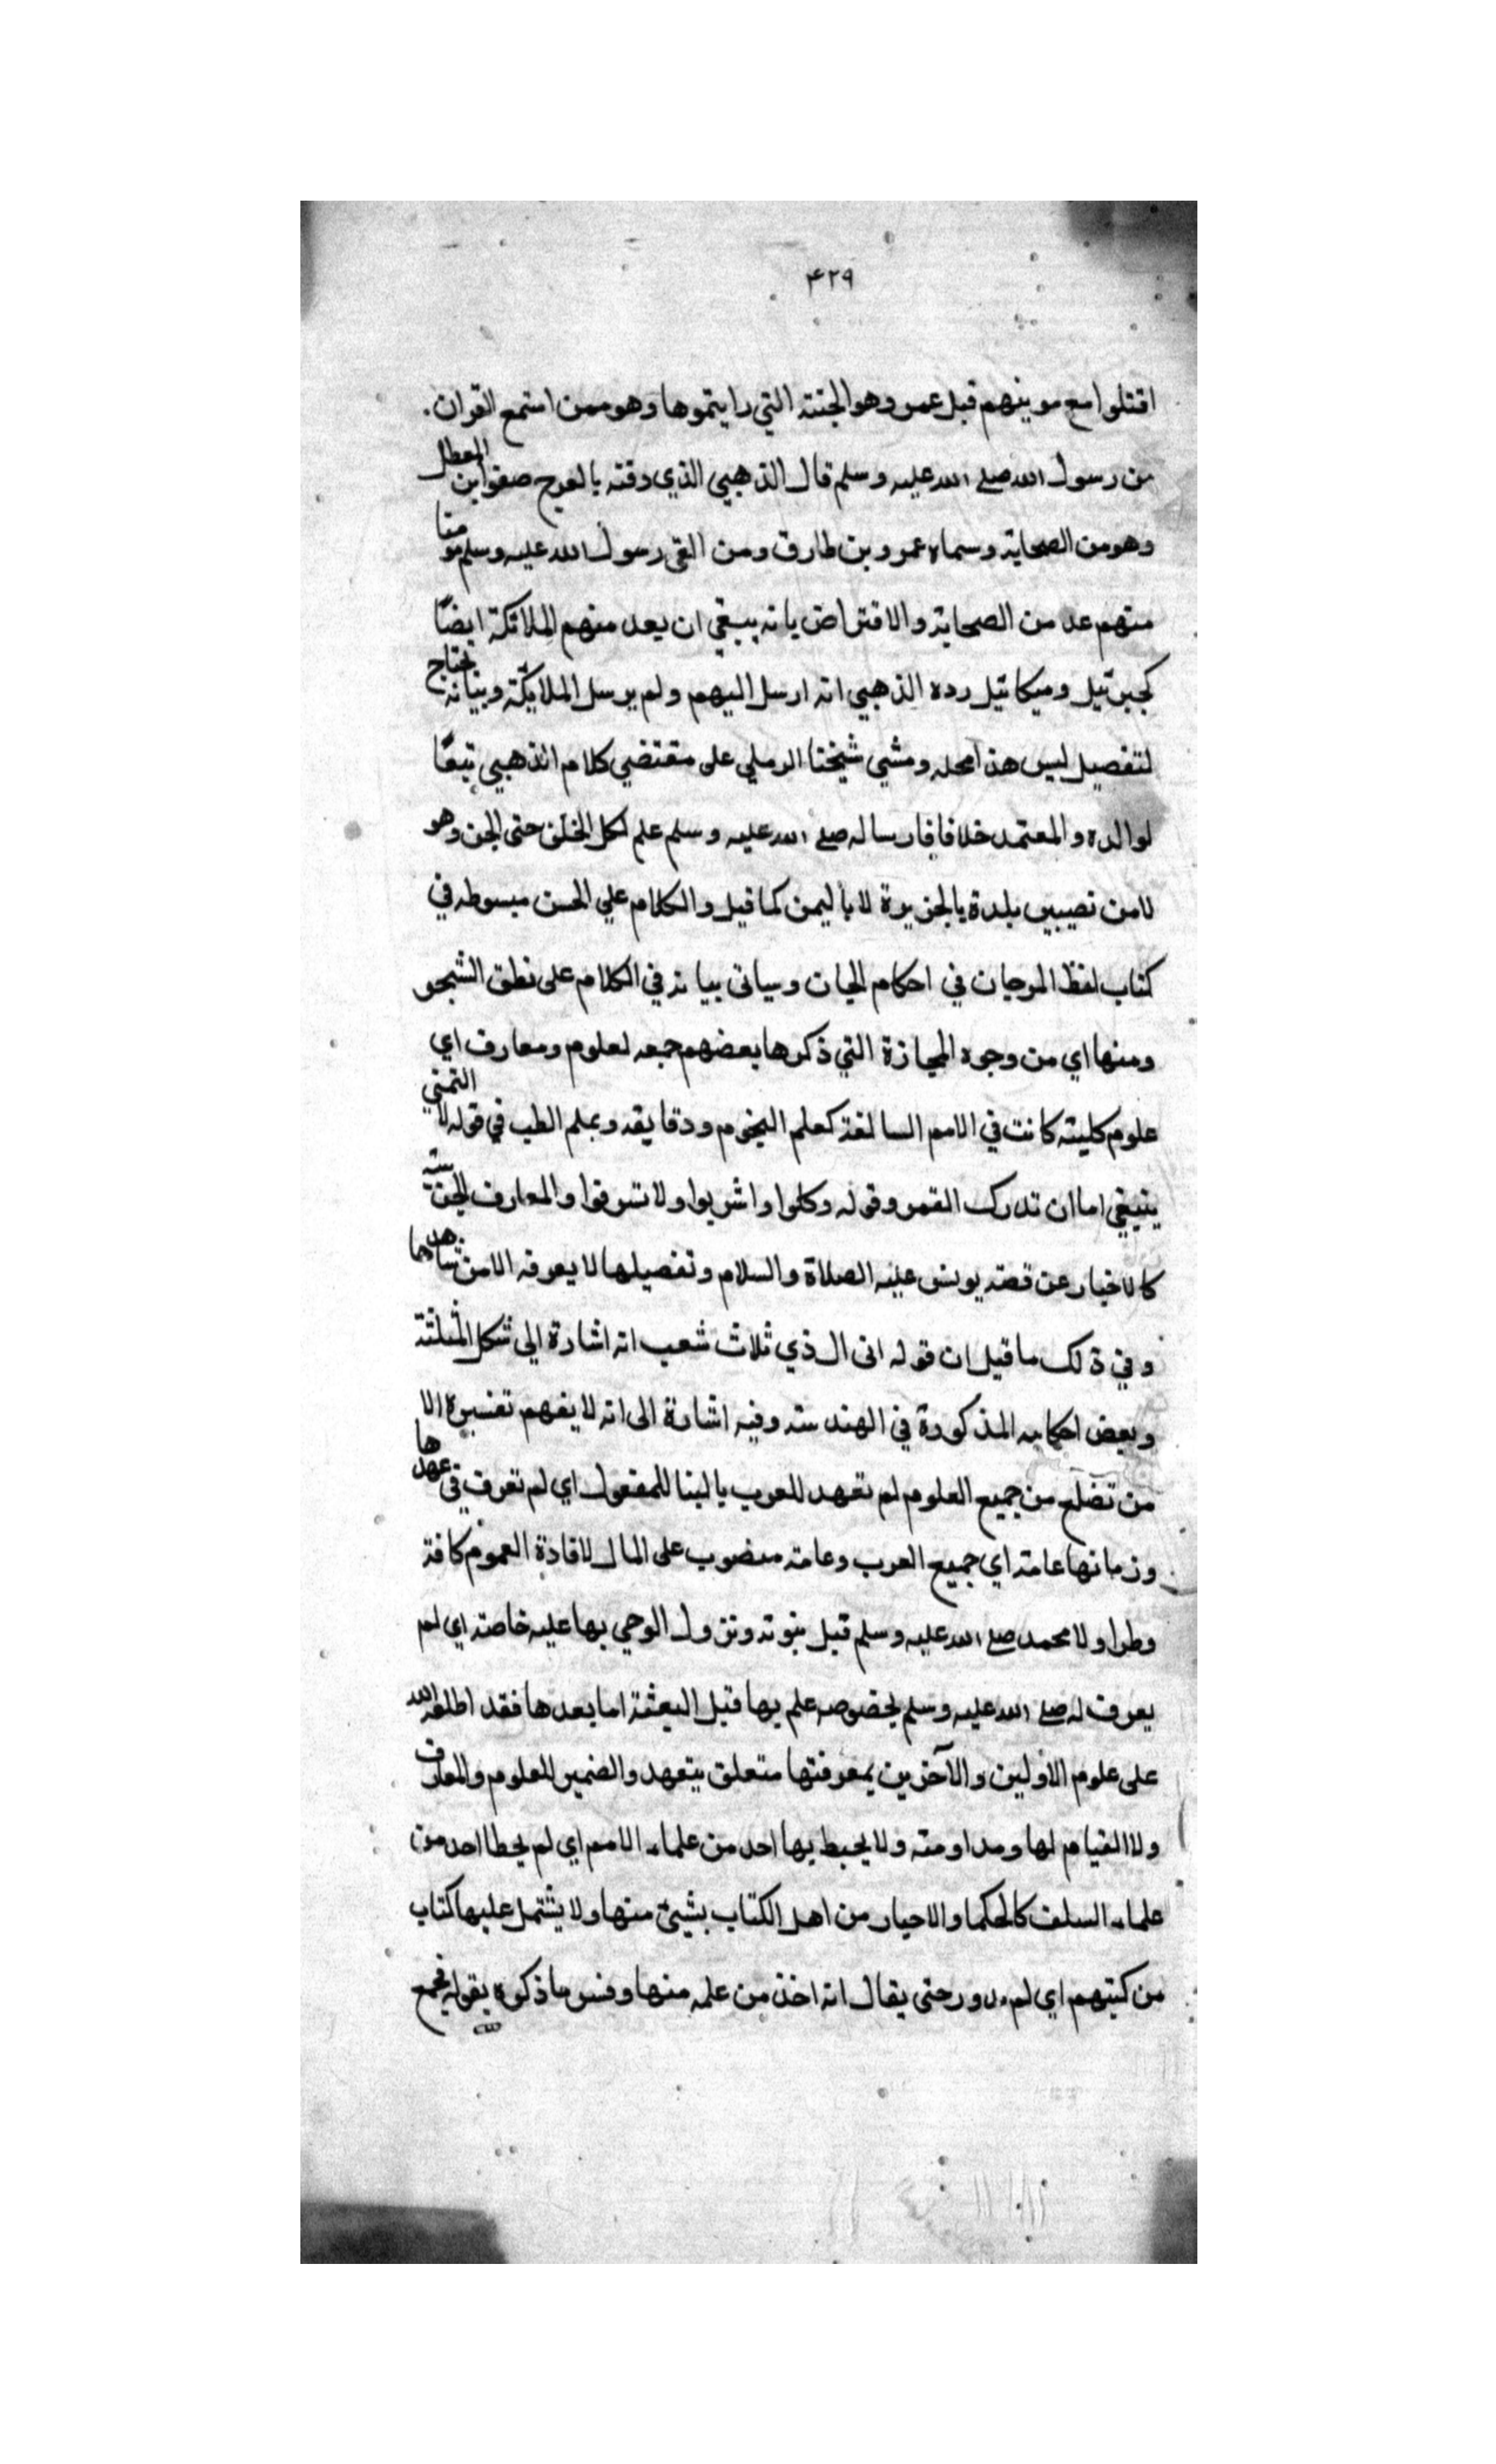 ۴۲۹
اقتلوا مع مومينهم قبل عمر وهو الجنته التي رايتموها وهو ممن استمع القران.
من رسول الله صلے الله عليه وسلم قال الذهبي الذي دفنه بالعرج صفوا بن المعطل
وهو من الصحاية وسماه عمرو بن طارق ومن القى رسول الله عليه وسلم مومنا
منهم عد من الصحاية والاقتراض يانه يببغي ان يعد منهم الملائكة ايضًا
كجبرئيل وميكائيل رده الذهبي انه ارسل اليهم ولم يرسل الملايكة وبيانه يحتاج
لتفصيل ليس هذا محله ومشي شيخنا الرملي على مقتضي كلام الذهبي تبعًا
لوالده والمعتمد خلافا فارساله صلے الله عليه وسلم علم لكل الخلق حتى الجن وهو
لامن نصيبين بلدة يالجزيرة لا باليمن كما قيل والكلام علي الحسن مبسوطه في
كتاب لفظ المرجان في احكام الجان وسياتى بيانه في الكلام على نطق الشجر
ومنها اي من وجوه المجازة التي ذكرها بعضهم جمعه لعلوم ومعارف اي
علوم كليته كانت في الامم السالفة كعلم النجوم ودقايقه وبعلم الطب في قوله لا التمني
ينبغي اما ان تدرك القمر وقوله وكلوا واشربوا ولا تسرفوا والمعارف الجنـ
كالاخبار عن قصته يونس عليه الصلاة والسلام وتفصيلها لا يعرفه الامن شاهدها
وفي ذلك ما قيل ان قوله انى ال ذي ثلاث شعب انه اشارة الي شكل المثلثة
وبعض احكامه المذكورة في الهند سته وفيه اشارة الى انه لا يفهم تفسيره الا
من تضلع من جميع العلوم لم تعهد للعرب يالبنا للمفعول اي لم تعرف في عهدها
وزمانها عامته اي جميع العرب وعامته منصوب على الحال لافادة العموم كافة
وطرا ولا محمد صلے الله عليه وسلم قبل نبوته ونزول الوحي بها عليه خاصته اي لم
يعرف له صلے الله عليه وسلم بخصوصه علم بها قبل البعثة اما بعدها فقد اطلعه الله
على علوم الاولين والآخرين يمعرفتها متعلق بتعهد والضمير للعلوم والمعارف
ولا القيام لها ومداومته ولا يحيط بها احد من علماء الامم اي لم يحط احد من
علماء السلف كالحكما والاحبار من اهل الكتاب بشيئ منها ولا يشتمل عليها كتاب
من كتبهم اي لم حتى يقال انه اخذ من علمه منها وفسر ما ذكره يقوله فجمع